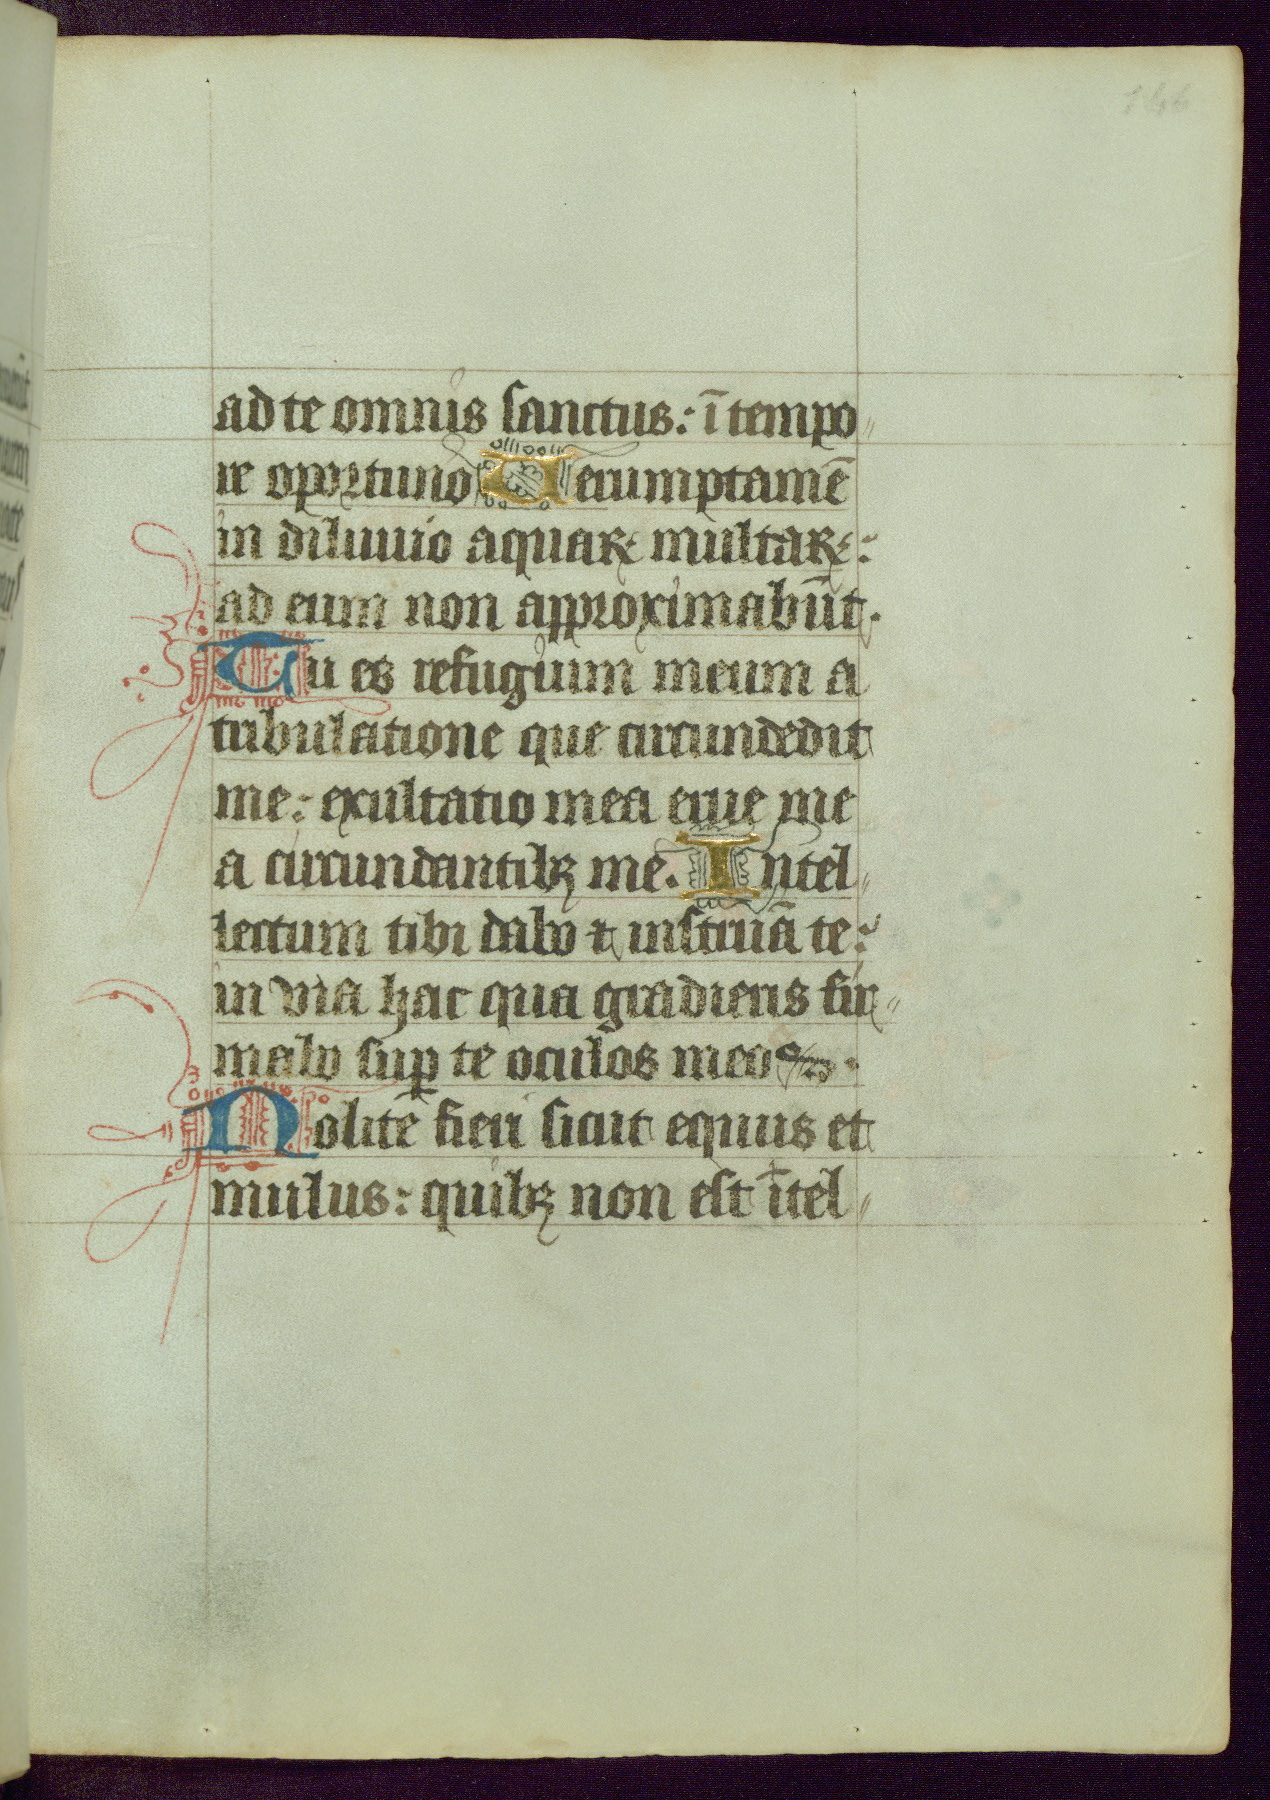 146
ad te omnis sanctus: ī tempo〃
re oportuno Uerumptamē
in diluuio aquaꝝ multaꝝ:
ad eum non approximabūt.
Tu es refugium meum a
tribulatione que circundedit
me: exultatio mea erue me
a circundantibꝫ me. Intel〃
lectum tibi dabo ⁊ instruā te:
in via hac qua gradieris fir〃
mabo suꝑ te oculos meos.
Nolite fieri sicut equus et
mulus: quibꝫ non est ītel〃